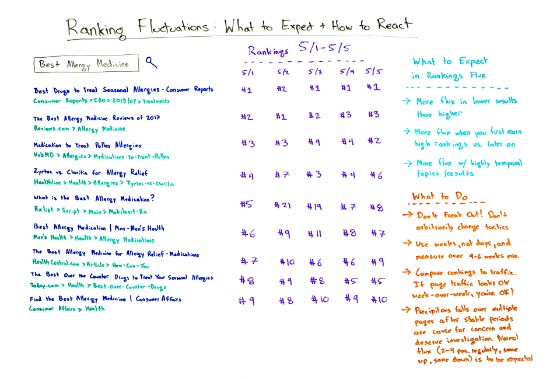 Ranking Fluctuations: What to Expect + How to React
Best Allergy Medicine
Rankings 5/1-5/5
5/1 5/2 5/3 5/4 5/5
Best Drugs to Treat Seasonal Allergies - Consumer Reports #1 #2 #1 #1 #1
Consumer Reports > CRO > 2013 > treatments
The Best Allergy Medicine Reviews of 2017 #2 #1 #2 #3 #3
Reviews.com > Allergy Medicine
Medication to Treat Pollen Allergies #3 #3 #9 #4 #2
WebMD > Allergies > Medications-to-Treat-Pollen
Zyrtec vs Claritin for Allergy Relief #4 #7 #3 #4 #6
Healthline > Health > Allergies > Zyrtec-vs-Claritin
What is the Best Allergy Medication? #5 #21 #19 #7 #8
Rxlist > Script > Main >
Best Allergy Medication | Men-Men's Health #6 #9 #11 #8 #7
Men's Health > Health > Allergy Medications
The Best Allergy Medicine for Allergy Relief - Medications #7 #10 #6 #6 #9
HealthCentral.com > Article > How-Can-You
The Best Over the Counter Drugs to Treat Your Seasonal Allergies #8 #9 #8 #5 #5
Today.com > Health > Best-Over-Counter-Drugs
Find the Best Allergy Medicine | Consumer Affairs #9 #8 #10 #9 #10
Consumer Affairs > Health
What to Expect
in Rankings Flux
→ More flux in lower results
than higher
→ More flux when you first earn
high rankings vs. later on
→ More flux w/ highly temporal
topics/results
What to Do
→ Don't Freak Out! Don't
arbitrarily change tactics
→ Use weeks, not days, and
measure over 4-6 weeks min.
→ Compare rankings to traffic.
If page traffic looks OK
week-over-week, you're OK!
→ Precipitous falls over multiple
pages after stable periods
are cause for concern and
deserve investigation. Normal
flux (2-4 pos. regularly, some
up, some down) is to be expected